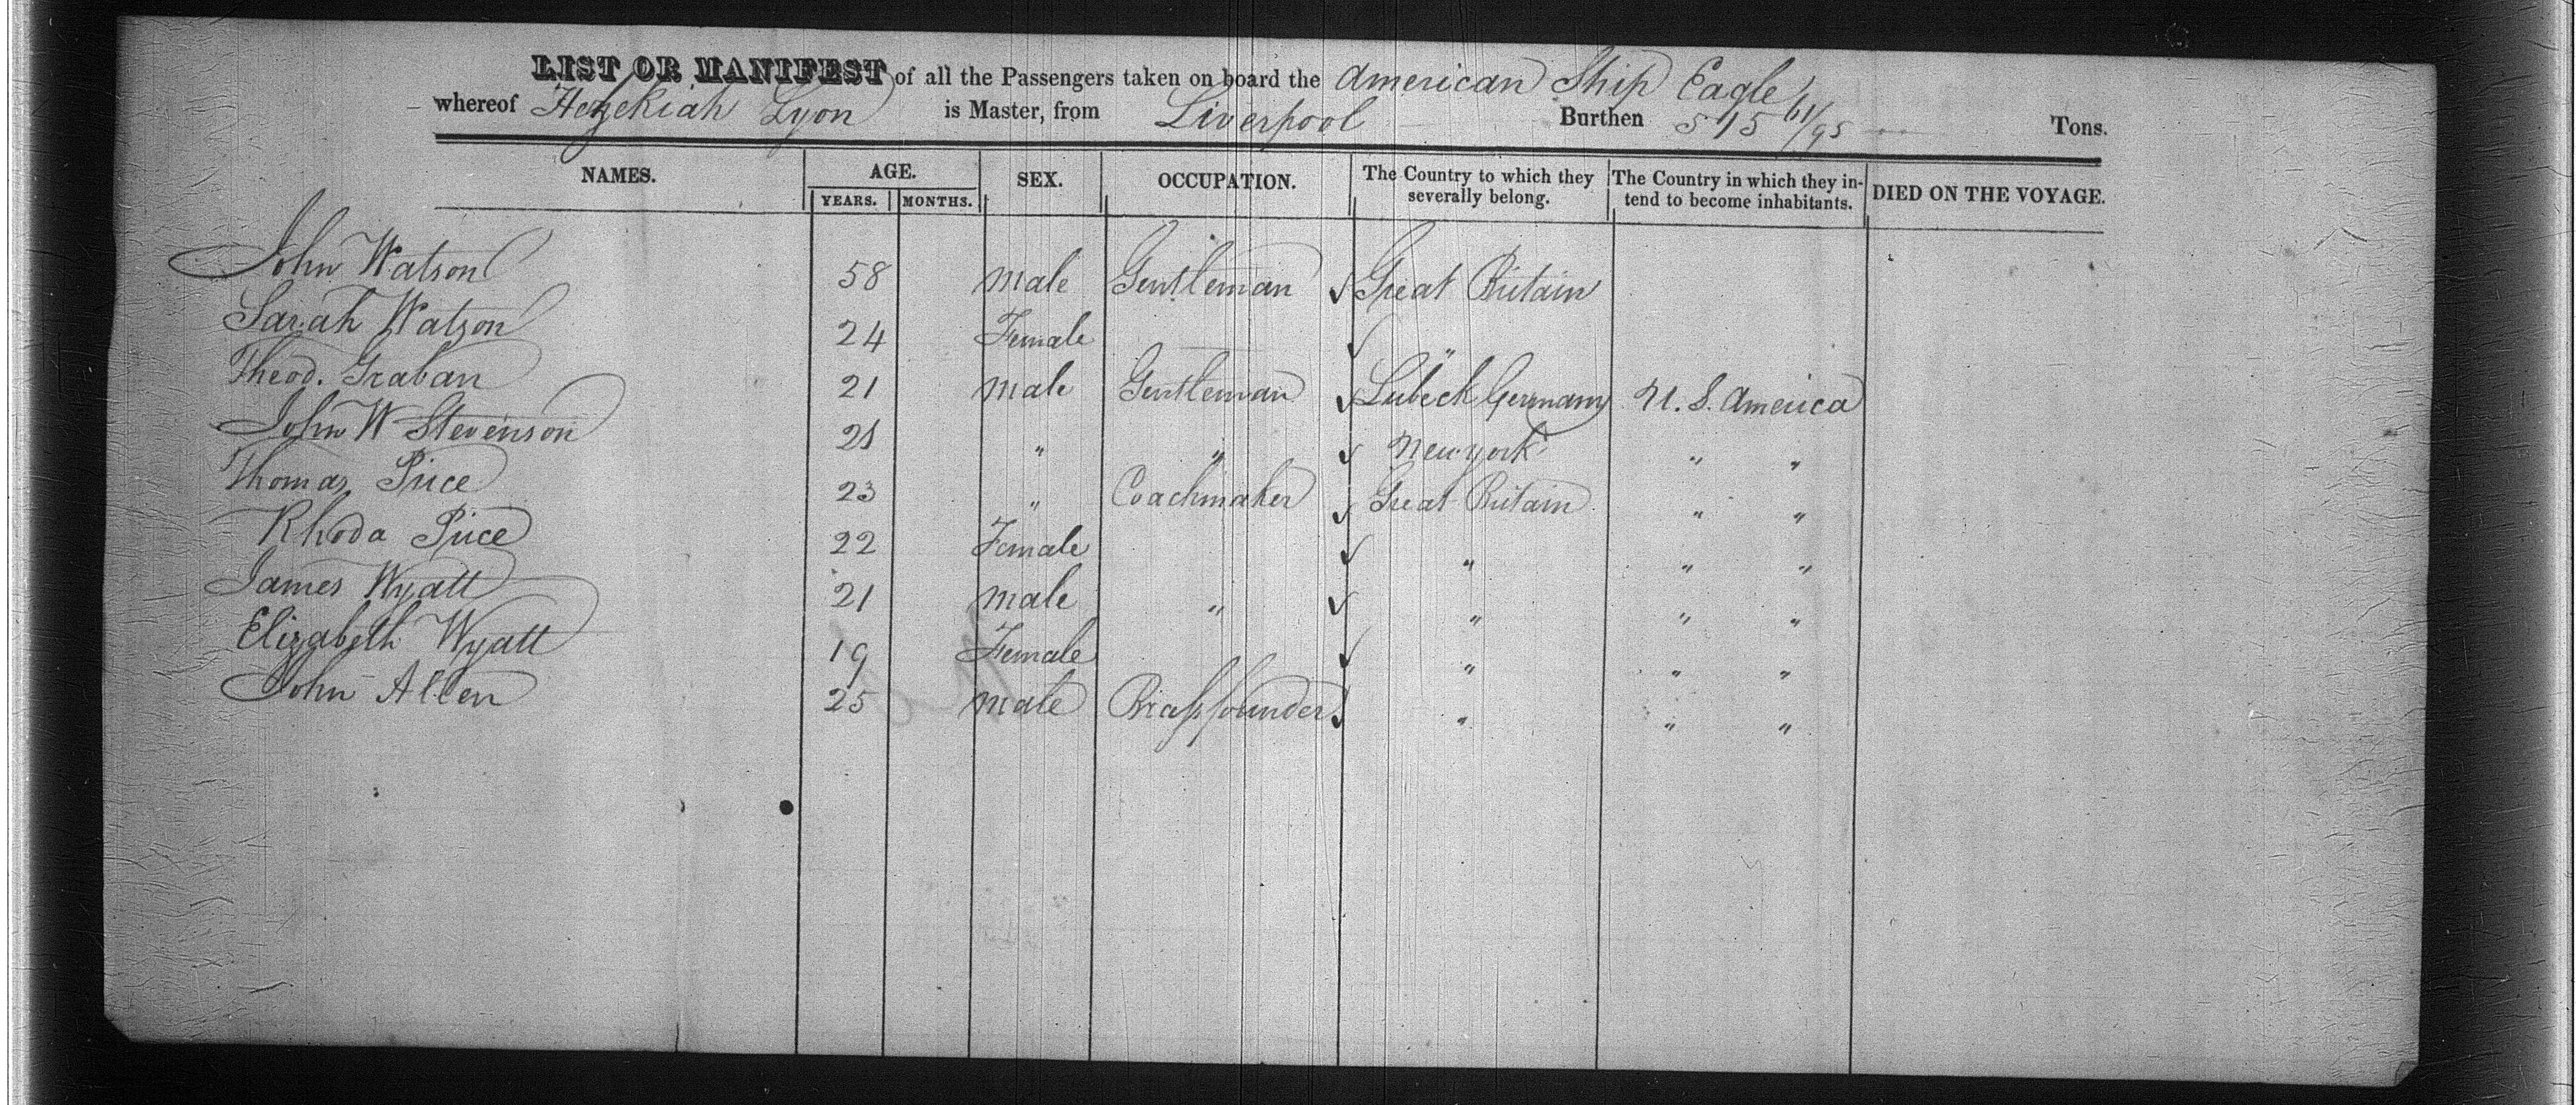 LIST OR MANIFEST of all the Passengers taken on board the American Ship Eagle
whereof Hezekiah Lyon is Master, from Liverpool Burthen 515 61/95 Tons.
NAMES. AGE. SEX. OCCUPATION. The Country to which they severally belong. The Country in which they intend to become inhabitants. DIED ON THE VOYAGE.
YEARS. MONTHS.
John Watson 58 male Gentleman ✓ Great Britain
Sarah Watson 24 Female ✓ "
Theod. Graban 21 male Gentleman ✓ Lubeck Germany U. S. America
John W Stevenson 21 " " ✓ New york " "
Thomas Price 23 " Coachmaker ✓ Great Britain " "
Rhoda Price 22 Female ✓ " " "
James Wyatt 21 male " ✓ " " "
Elizabeth Wyatt 19 Female ✓ " " "
John Allen 25 male Brassfounder ✓ " " "